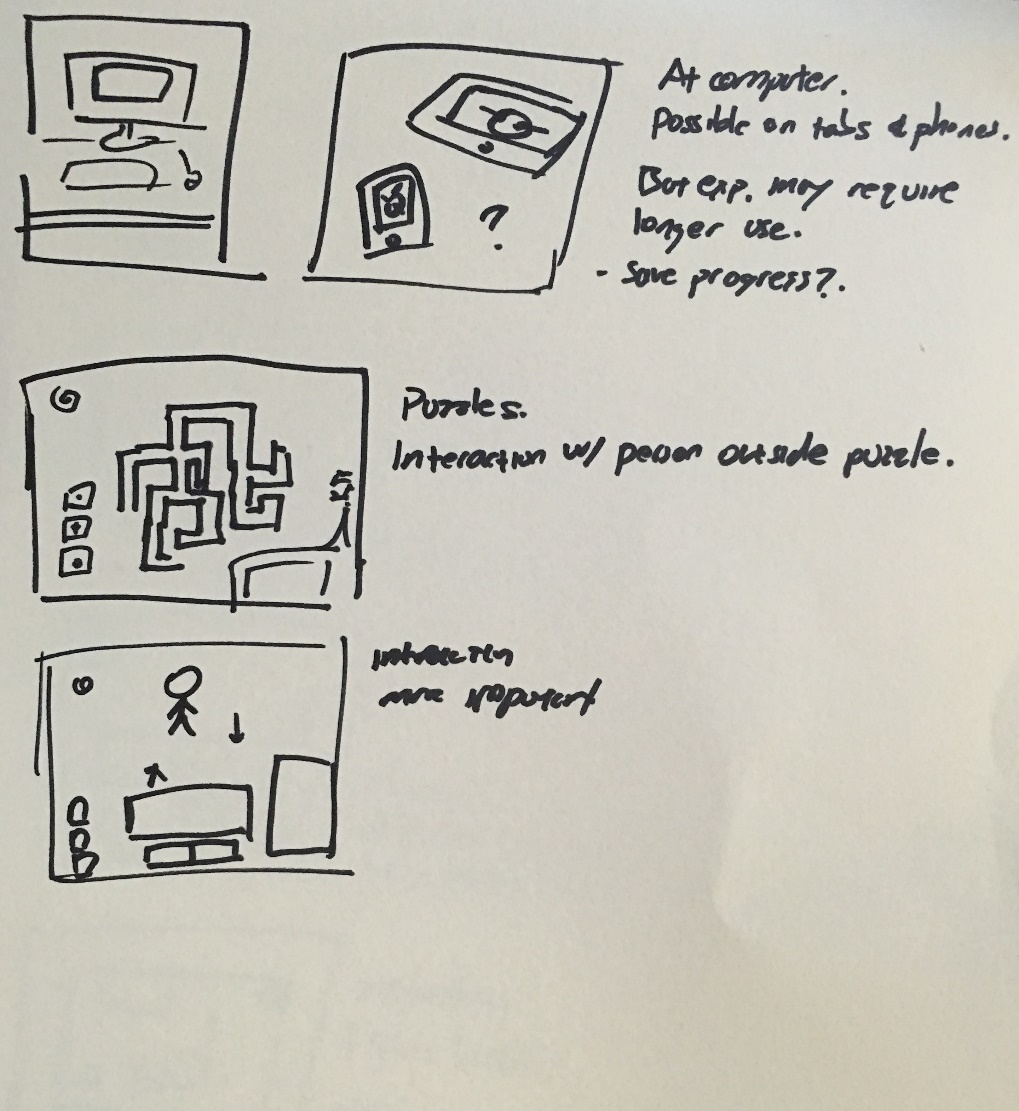 At computer.
Possible on tabs & phones.
But exp. may require
longer use.
- Save progress?.
?
Puzzles.
Interaction w/ person outside puzzle.
interaction
more important